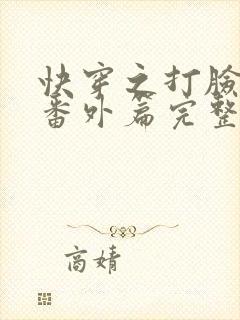 快穿之打脸
番外篇完整
商婧